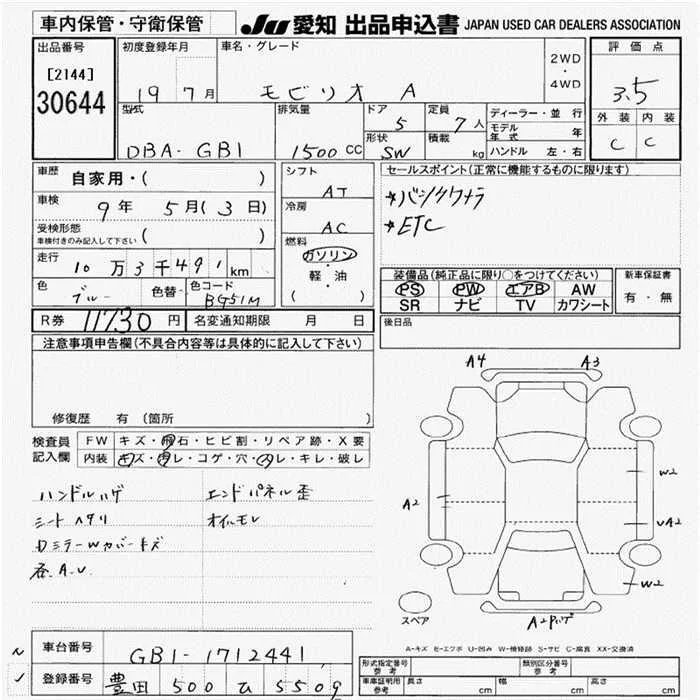 車内保管・守衛保管
JU 愛知 出品申込書 JAPAN USED CAR DEALERS ASSOCIATION
出品番号
[2144]
30644
初度登録年月
19 7月
車名・グレード
モビリオ A
2WD
・
4WD
評価点
3.5
外装 内装
C C
型式
DBA-GB1
排気量
1500 CC
ドア
5
形状
SW
定員
7人
積載
kg
ディーラー・並行
モデル年式 年
ハンドル 左・右
車歴
自家用・( )
車検
9年 5月(3日)
受検形態
車検付きのみ記入して下さい ( )
走行
10万3千491km
色
ブルー
色替
色コード
BG51M
シフト
AT
冷房
AC
燃料
ガソリン
・
軽・油
( )
セールスポイント(正常に機能するものに限ります)
*バックカメラ
*ETC
装備品(純正品に限り○をつけてください)
PS PW エアB AW
SR ナビ TV カワシート
新車保証書
有・無
R券 11730円
名変通知期限 月 日
後日品
注意事項申告欄(不具合内容等は具体的に記入して下さい)
修復歴 有 (箇所 )
検査員記入欄
FW キズ・飛石・ヒビ割・リペア跡・X要
内装 キズ・汚レ・コゲ・穴・スレ・キレ・破レ
ハンドルハゲ
シートヘタリ
Dミラーwカバーキズ
各A.U
エンドパネル歪
オイルモレ
A4 A3
A2
W2
UA2
W2
A2ハゲ
スペア
A-キズ E-エクボ U-凹み W-補修跡 S-サビ C-腐食 XX-交換済
車台番号 GB1-1712441
登録番号 豊田 500 ひ 5509
形式指定番号 参考
類別区分番号 参考
車庫証明用 参考
長さ cm
幅 cm
高さ cm